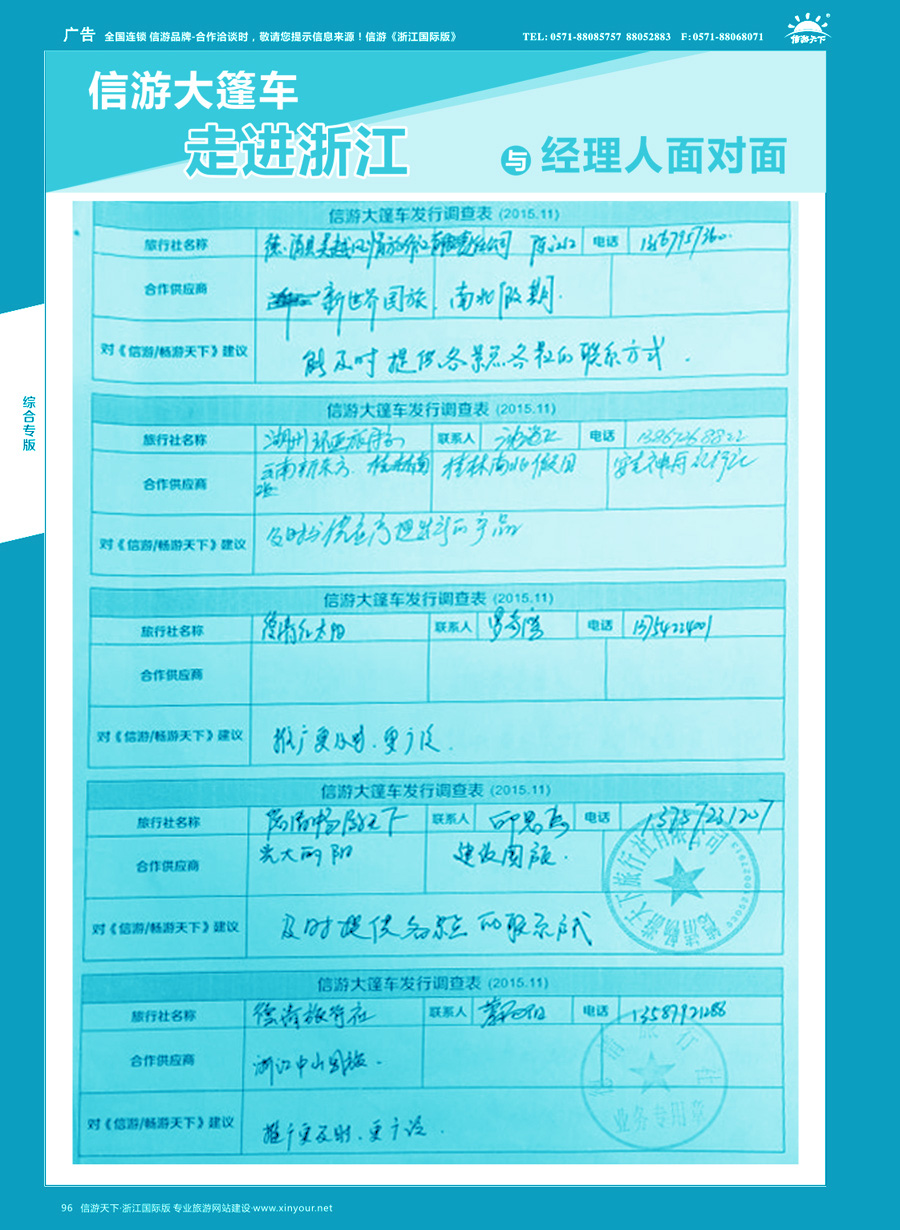 广告 全国连锁 信游品牌-合作洽谈时，敬请您提示信息来源！信游《浙江国际版》 TEL: 0571-88085757 88052883 F: 0571-88068071
信游天下
信游大篷车
走进浙江
与 经理人面对面
综合专版
信游大篷车发行调查表 (2015.11)
旅行社名称 德清县吴越风情旅行社有限责任公司 电话
合作供应商 新世界国旅. 南北假期.
对《信游/畅游天下》建议 能及时提供各景点各社的联系方式.
信游大篷车发行调查表 (2015.11)
旅行社名称 湖州环亚旅行社 联系人 电话
合作供应商 云南新东方. 桂林南北 桂林南北假日
对《信游/畅游天下》建议 及时与供应商提出新的产品
信游大篷车发行调查表 (2015.11)
旅行社名称 德清红太阳 联系人 电话 13754224001
合作供应商
对《信游/畅游天下》建议 推广更及时.更广泛.
信游大篷车发行调查表 (2015.11)
旅行社名称 德清畅游天下 联系人 电话 13757231207
合作供应商 建设国旅.
对《信游/畅游天下》建议 及时提供各景点的联系方式
德清畅游天下旅行社有限公司
信游大篷车发行调查表 (2015.11)
旅行社名称 德清旅行社 联系人 电话 13587921288
合作供应商 浙江中山国旅.
对《信游/畅游天下》建议 推广更及时.更广泛.
德清旅行社
业务专用章
96 信游天下·浙江国际版 专业旅游网站建设·www.xinyour.net